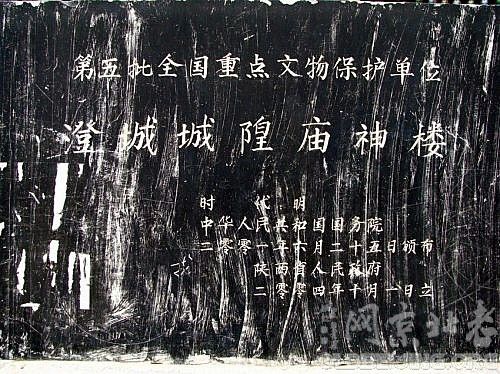 第五批全国重点文物保护单位
澄城城隍庙神楼
时代 明
中华人民共和国国务院
二零零一年六月二十五日颁布
陕西省人民政府
二零零四年十月一日立